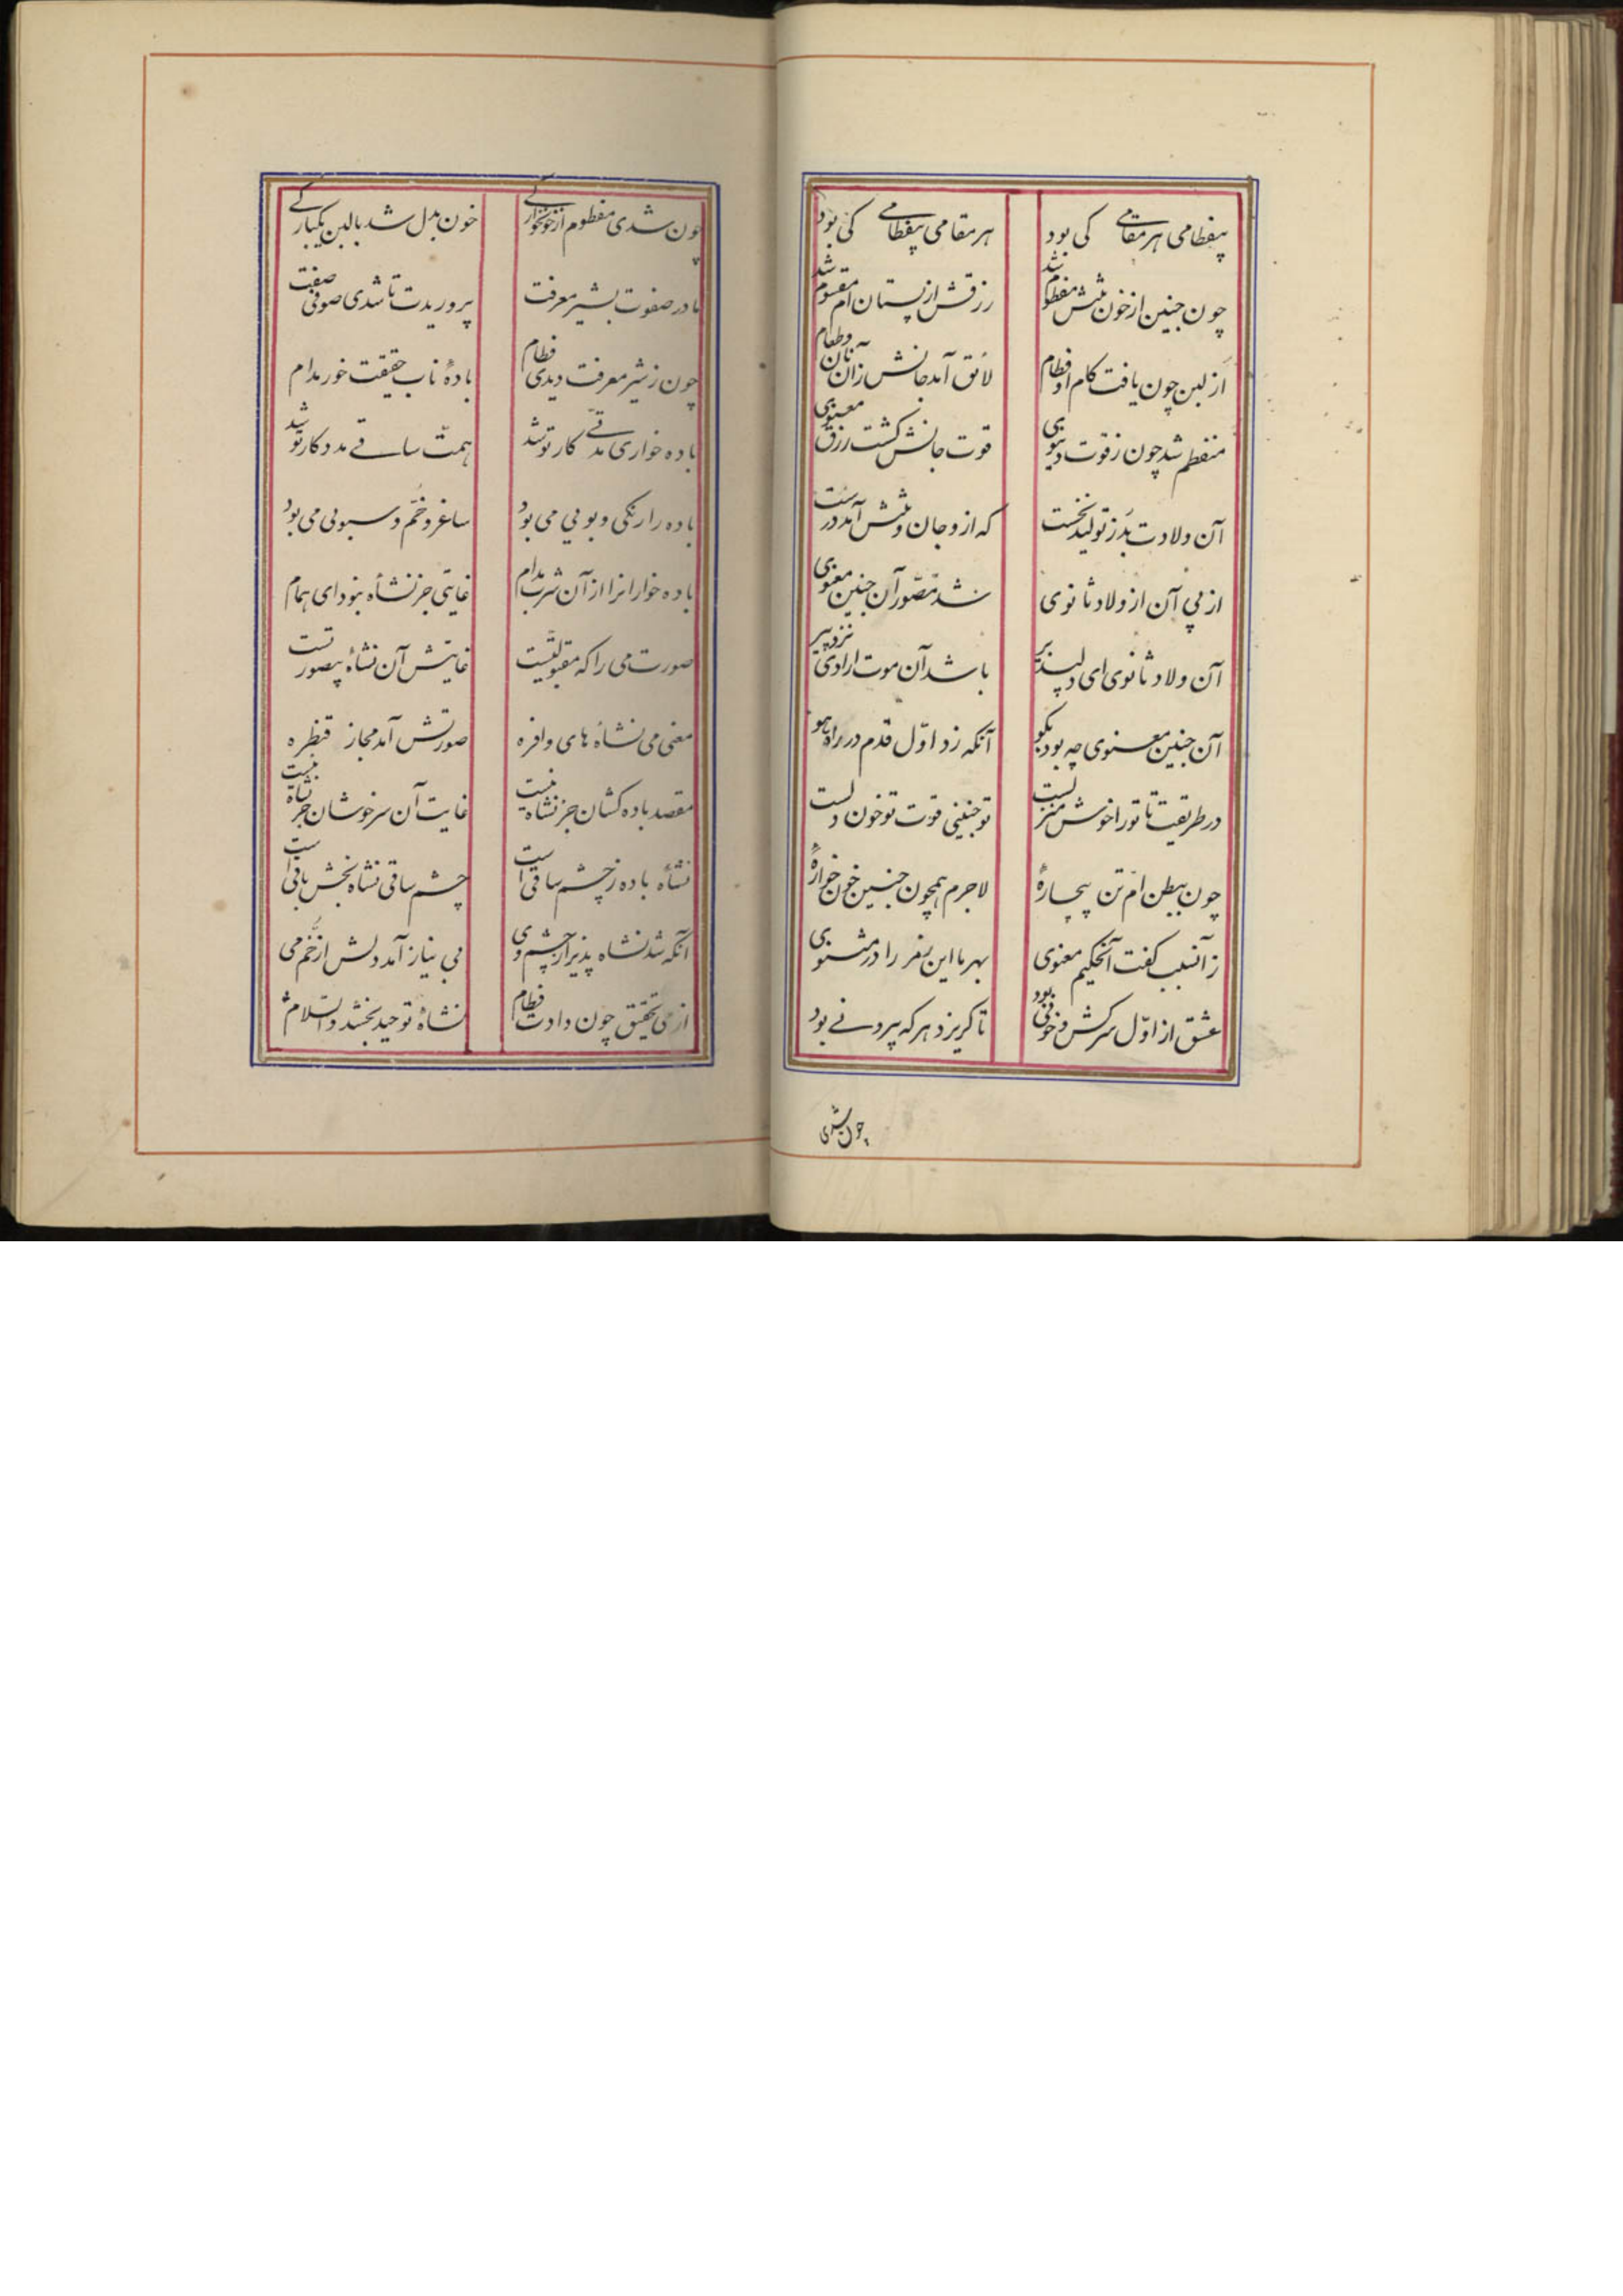 بیفطامی هر مقامی کی بود هر مقامی بیفطامی کی بود
چون جنین از خون تنش مفطوم شد رزقش از پستان ام مقسوم شد
از لبن چون یافت کام او فطام لائق آمد جانش زان نان و طعام
منفطم شد چون ز قوت دنیوی قوت جانش گشت رزق معنوی
آن ولادت بد ز تولید نخست که ازو جان و تنش آمد درست
از پی آن از ولاد ثانوی شد مصوّر آن جنین معنوی
آن ولاد ثانوی ای دلپذیر باشد آن موت ارادی نزد پیر
آن جنین معنوی چه بود بگو آنکه زد اوّل قدم در راه هو
در طریقت تا تو را خوش منزلست تو جنینی قوت تو خون دلست
چون ببطن امّ تن بیچارهٔ لاجرم همچون جنین خون خوارهٔ
زانسبب گفت آنحکیم معنوی بهر ما این نغز را در مثنوی
عشق از اوّل سرکش و خونی بود تا گریزد هر که بیرونی بود
چون شدی
چون شدی مفطوم از خونخوارگی خون بدل شد بالبن یکبارگی
مادر صفوت بشیر معرفت پروریدت تا شدی صوفی صفت
چون ز شیر معرفت دیدی فطام بادهٔ ناب حقیقت خور مدام
باده خواری مدّتی کار تو شد همّت ساقی مددکار تو شد
باده را رنگی و بویی می بود ساغر و خمّ و سبویی می بود
باده خوارانرا از آن شرب مدام غایتی جز نشأه نبود ای همام
صورت می را که مقبولیّتست غایتش آن نشأه بیصورتست
معنی می نشأه های وافره صورتش آمد مجاز قنطره
مقصد باده کشان جز نشاه نیست غایت آن سرخوشان جز نشاه نیست
نشأه باده ز چشم ساقی است چشم ساقی نشاه بخش باقی است
آنکه شد نشاه پذیر از چشم وی بی نیاز آمد دلش از خمّ می
از می تحقیق چون دادت فطام نشاهٔ توحید بخشد والسّلام